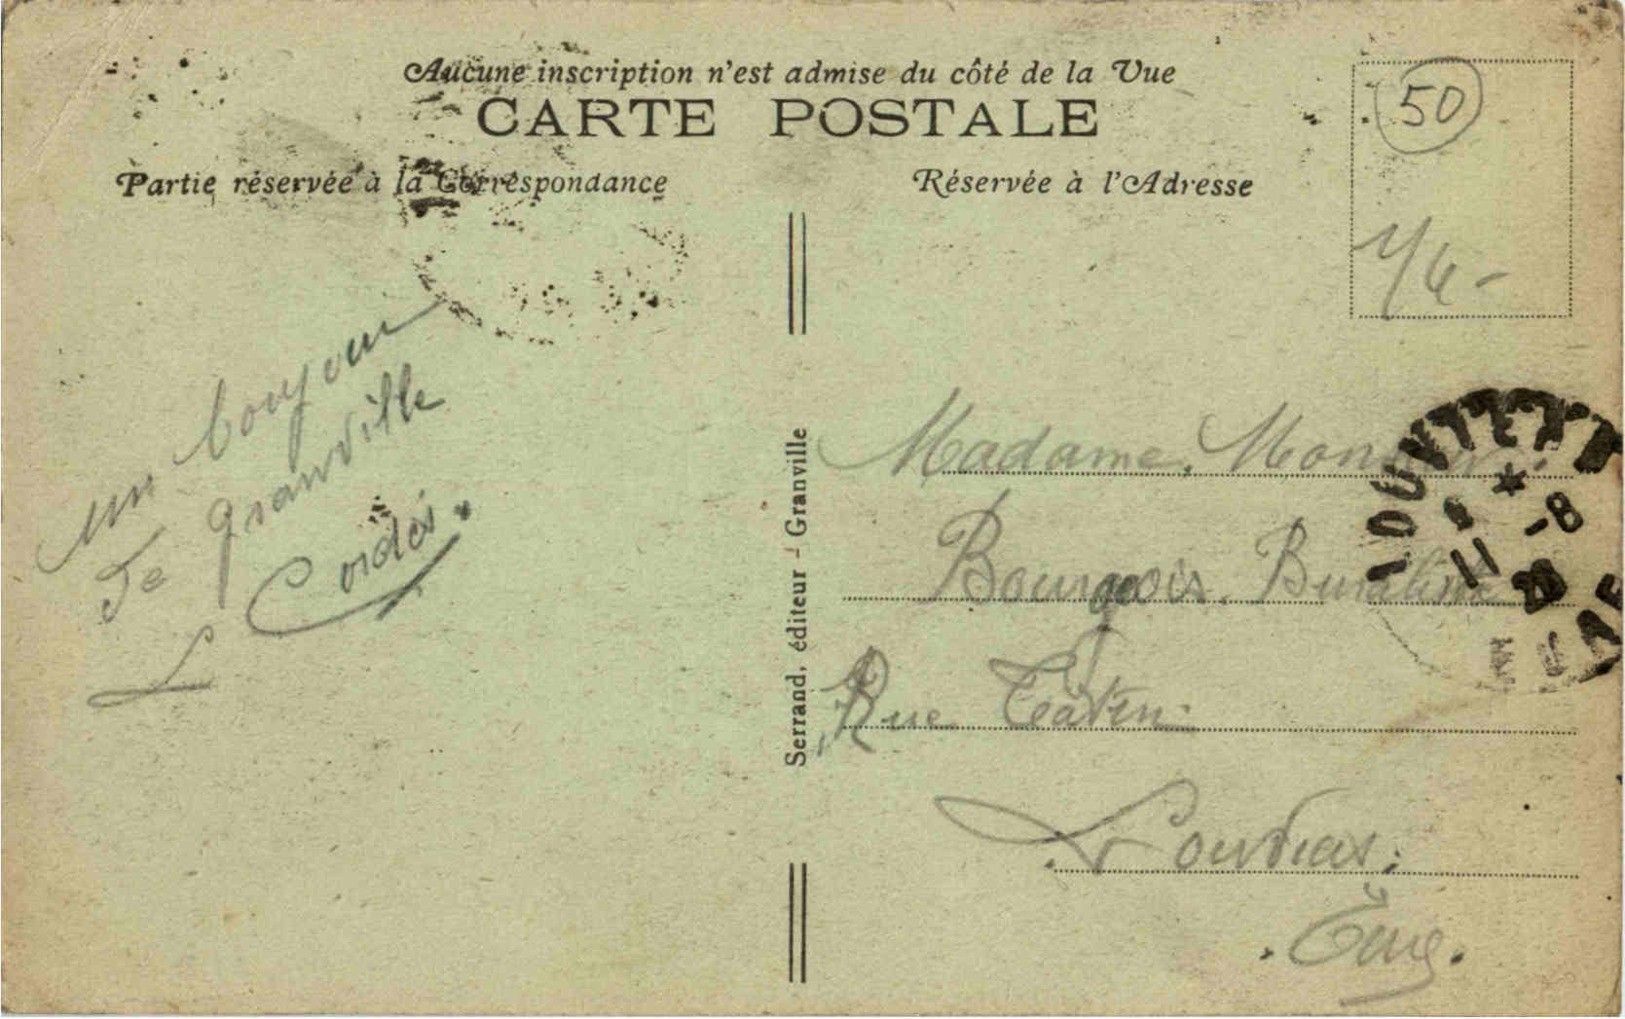 Aucune inscription n'est admise du côté de la Vue
CARTE POSTALE
Partie réservée à la Correspondance
Réservée à l'Adresse
50
un bonjour
de granville
L Cordier.
Serrand, éditeur - Granville
Madame,
Bourgeois. Buraliste
Rue
Louviers,
Eure.
11 -8